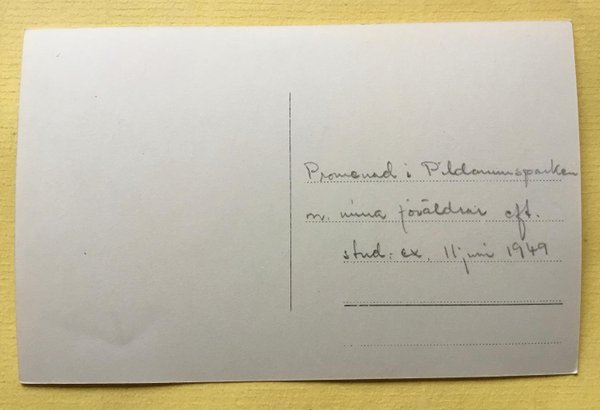 Promenad i Pildammsparken
m. mina föräldrar eft.
stud. ex. 11 juni 1949